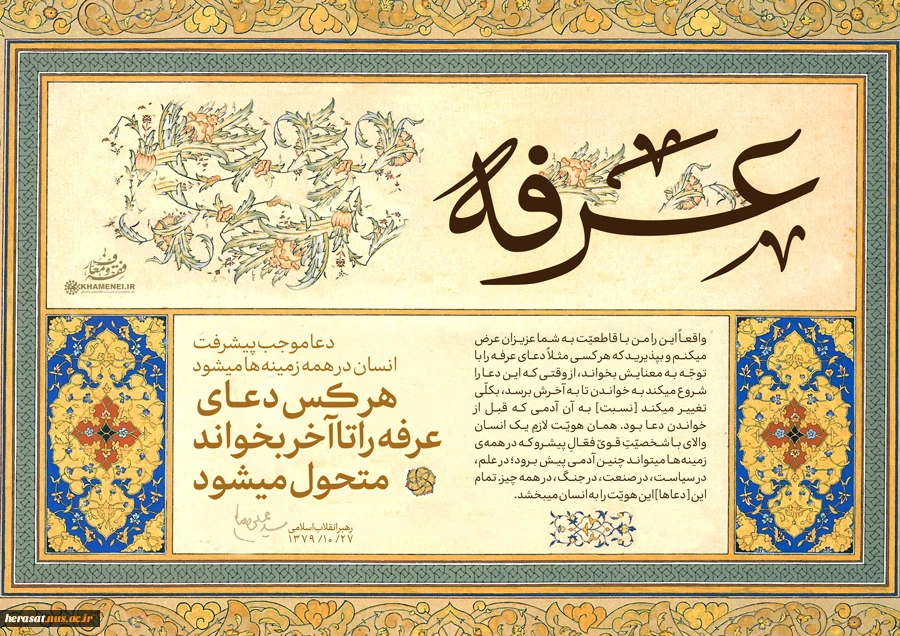 عرفه
فقه و معارف
KHAMENEI.IR
واقعاً این را من با قاطعیّت به شما عزیزان عرض
میکنم و بپذیرید که هر کسی مثلاً دعای عرفه را با
توجّه به معنایش بخواند، از وقتی که این دعا را
شروع میکند به خواندن تا به آخرش برسد، بکلّی
تغییر میکند [نسبت] به آن آدمی که قبل از
خواندن دعا بود. همان هویّت لازمِ یک انسان
والای با شخصیّتِ قویّ فعّالِ پیشرو که در همه‌ی
زمینه‌ها میتواند چنین آدمی پیش برود؛ در علم،
در سیاست، در صنعت، در جنگ، در همه چیز. تمام
این [دعاها] این هویّت را به انسان میبخشد.
دعا موجب پیشرفت
انسان در همه زمینه‌ها میشود
هر کس دعای
عرفه را تا آخر بخواند
متحول میشود
رهبر انقلاب اسلامی
۱۳۷۹/۱۰/۲۷
herasat.nus.ac.ir